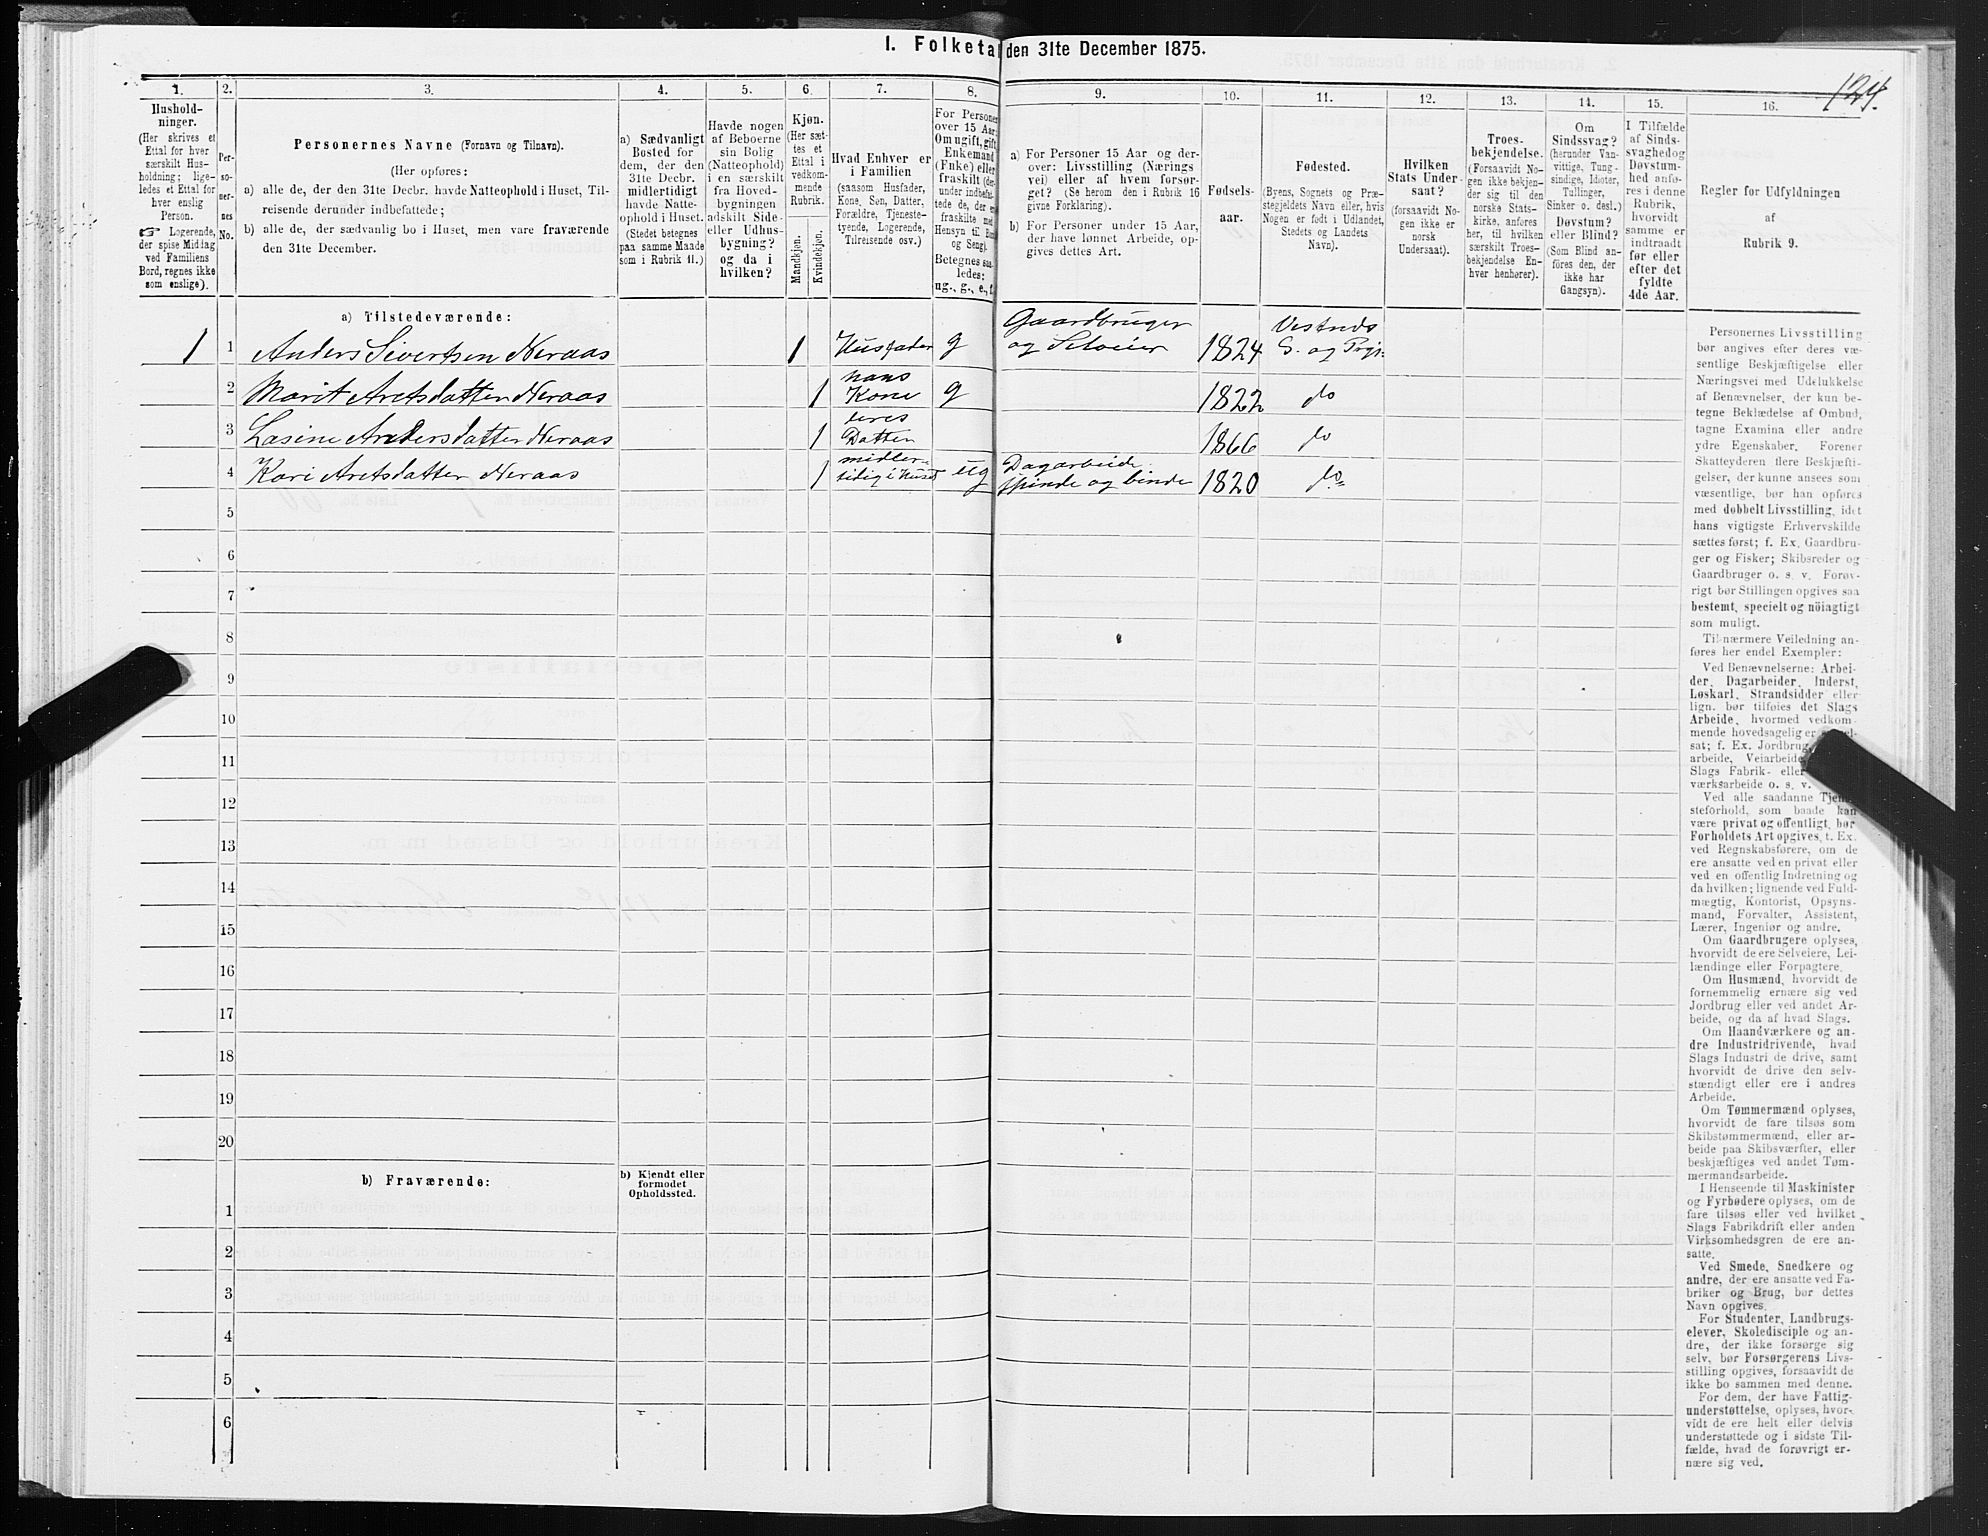 I. Folketal den 31te December 1875.
124.
1.
2.
3.
4.
5.
6.
7.
8.
9.
10.
11.
12.
13.
14.
15.
16.
Hushold-
ninger.
(Her skrives et
Ettal for hver
særskilt Hus-
holdning; lige-
ledes et Ettal for
hver enslig
Person.
☞ Logerende,
der spise Middag
ved Familiens
Bord, regnes ikke
som enslige).
Per-
so-
ner-
nes
No.
Personernes Navne (Fornavn og Tilnavn).
(Her opføres:
a) alle de, der den 31te Decbr. havde Natteophold i Huset, Til-
reisende derunder indbefattede;
b) alle de, der sædvanlig bo i Huset, men vare fraværende
den 31te December.
a) Sædvanligt
Bosted for
dem, der den
31te Decbr.
midlertidigt
havde Natte-
ophold i Huset.
(Stedet betegnes
paa samme Maade
som i Rubrik 11.)
Havde nogen
af Beboerne
sin Bolig
(Natteophold)
i en særskilt
fra Hoved-
bygningen
adskilt Side-
eller Udhus-
bygning?
og da i
hvilken?
Kjøn.
(Her sæt-
tes et
Ettal i
vedkom-
mende
Rubrik.
Mandkjøn.
Kvindekjøn.
Hvad Enhver er
i Familien
(saasom Husfader,
Kone, Søn, Datter,
Forældre, Tjeneste-
tyende, Logerende,
Tilreisende osv.)
For Personer
over 15 Aar:
Om ugift, gift,
Enkemand
(Enke) eller
fraskilt (der-
under indbefat-
tede de, der er
fraskilte med
Hensyn til Bord
og Seng).
Betegnes saa-
ledes:
ug., g., e., f.
a) For Personer 15 Aar og der-
over: Livsstilling (Nærings
vei) eller af hvem forsør-
get? (Se herom den i Rubrik 16
givne Forklaring).
b) For Personer under 15 Aar,
der have lønnet Arbeide, op-
gives dettes Art.
Fødsels-
aar.
Fødested.
(Byens, Sognets og Præ-
stegjeldets Navn eller, hvis
Nogen er født i Udlandet,
Stedets og Landets
Navn).
Hvilken
Stats Under-
saat?
(forsaavidt No-
gen ikke er
norsk
Undersaat).
Troes-
bekjendelse.
(Forsaavidt No-
gen ikke bekjen-
der sig til den
norske Stats-
kirke, anføres
her, til hvilken
særskilt Troes-
bekjendelse En-
hver henhører).
Om
Sindssvag?
(herunder Van-
vittige, Tung-
sindige, Idioter,
Tullinger,
Sinker o. desl.)
Døvstum?
eller Blind?
(Som Blind an-
føres den, der
ikke har
Gangsyn).
I Tilfælde
af Sinds-
svaghed og
Døvstum-
hed anfø-
res i denne
Rubrik,
hvorvidt
samme er
indtraadt
før eller
efter det
fyldte
4de Aar.
Regler for Udfyldningen
af
Rubrik 9.
a) Tilstedeværende:
1 1 Anders Sivertsen Neraas 1 Husfader g Gaardbruger og Selveier 1824 Vestnes S. og Prgj.
2 Marit Aretsdatter Neraas 1 hans Kone g 1822 do
3 Lasine Andersdatter Neraas 1 deres Datter 1866 do
4 Kari Aretsdatter Neraas 1 midler- tidig i Huset ug Dagarbeide spinde og binde 1820 do
5
6
7
8
9
10
11
12
13
14
15
16
17
18
19
20
b) Fraværende:
b) Kjendt eller
formodet
Opholdssted.
1
2
3
4
5
6
Personernes Livsstilling
bør angives efter deres væ-
sentlige Beskjæftigelse eller
Næringsvei med Udelukkelse
af Benævnelser, der kun be-
tegne Beklædelse af Ombud,
tagne Examina eller andre
ydre Egenskaber. Forener
Skatteyderen flere Beskjæfti-
gelser, der kunne ansees som
væsentlige, bør han opføres
med dobbelt Livsstilling, idet
hans vigtigste Erhvervskilde
sættes først; f. Ex. Gaardbru-
ger og Fisker; Skibsreder og
Gaardbruger o. s. v. Forøv-
rigt bør Stillingen opgives saa
bestemt, specielt og nöiagtigt
som muligt.
Til nærmere Veiledning an-
føres her endel Exempler:
Ved Benævnelserne: Arbei-
der, Dagarbeider, Inderst,
Løskarl, Strandsidder eller
lign. bør tilføies det Slags
Arbeide, hvormed vedkom-
mende hovedsagelig er
sat; f. Ex. Jordbrug
arbeide, Veiarbeide
Slags Fabrik- eller
værksarbeide o. s. v.
Ved alle saadanne Tjene-
steforhold, som baade kan
være privat og offentligt, bør
Forholdets Art opgives, t. Ex.
ved Regnskabsførere, om de
ere ansatte ved en privat eller
ved en offentlig Indretning og
da hvilken; lignende ved Fuld-
mægtig, Kontorist, Opsyns-
mand, Forvalter, Assistent,
Lærer, Ingeniør og andre.
Om Gaardbrugere oplyses,
hvorvidt de ere Selveiere, Lei-
lændinge eller Forpagtere.
Om Husmænd, hvorvidt de
fornemmelig ernære sig ved
Jordbrug eller ved andet Ar-
beide, og da af hvad Slags.
Om Haandværkere og an-
dre Industridrivende, hvad
Slags Industri de drive, samt
hvorvidt de drive den selv-
stændigt eller ere i andres
Arbeide.
Om Tømmermænd oplyses,
hvorvidt de fare tilsøs som
Skibstømmermænd, eller ar-
beide paa Skibsværfter, eller
beskjæftiges ved andet Tøm-
mermandsarbeide.
I Henseende til Maskinister
og Fyrbødere oplyses, om de
fare tilsøs eller ved hvilket
Slags Fabrikdrift eller anden
Virksomhedsgren de ere an-
satte.
Ved Smede, Snedkere og
andre, der ere ansatte ved Fa-
briker og Brug, bør dettes
Navn opgives.
For Studenter, Landbrugs-
elever, Skoledisciple og an-
dre, der ikke forsørge sig
selv, bør Forsørgerens Livs-
stilling opgives, forsaavidt de
ikke bo sammen med denne.
For dem, der have Fattig-
understøttelse, oplyses, hvor-
vidt de ere helt eller delvis
understøttede og i sidste Til-
fælde, hvad de forøvrigt er-
nære sig ved.